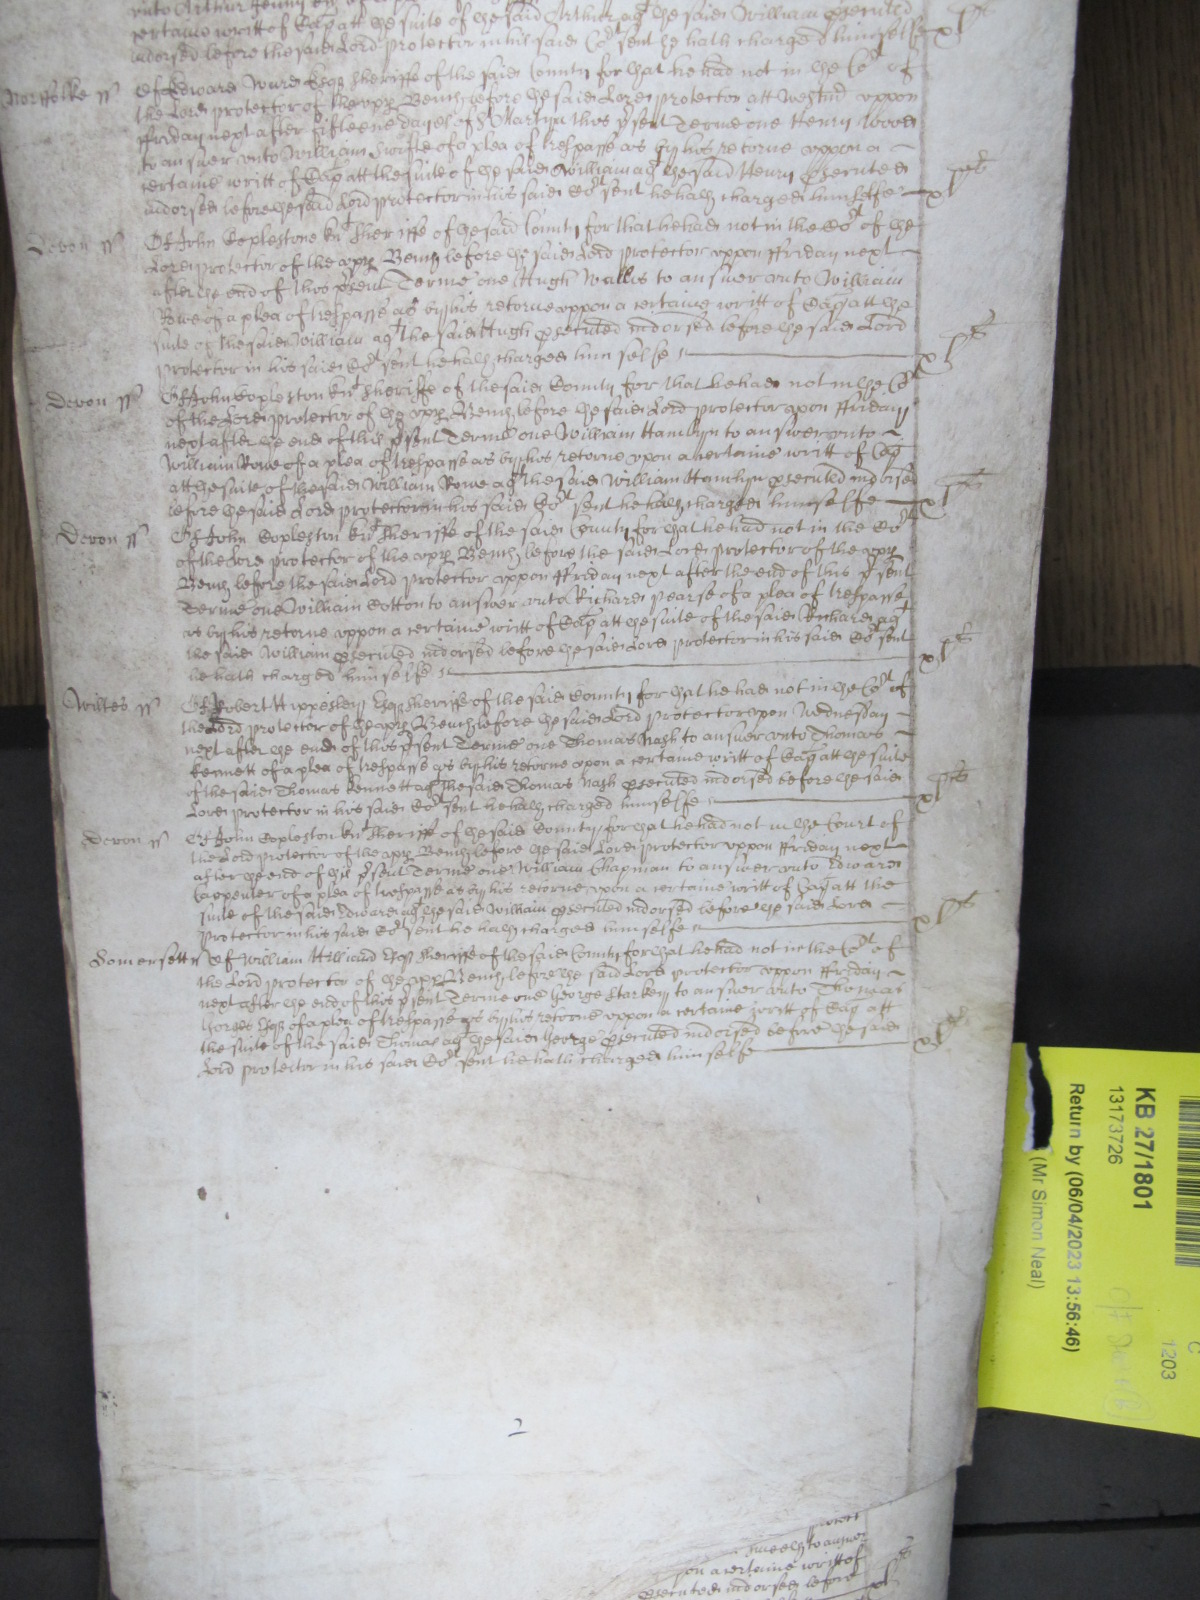 unto Arthur
certaine writt of Cap att the suite of the said Arthur agt the said William executed
indorsed before the said Lord Protector in his said Cort sent he hath charged himselfe xls
Norffolke ss Of Edward Ward Esqr Sheriffe of the said County for that he had not in the Cort of
the Lord Protector of the upp Bench before the said Lord Protector att Westmr uppon
ffriday next after fifteene dayes of St Martyn this psent Terme one Henry
to answer unto William of a plea of trespasse as by his retorne uppon a
certaine writt of Cap att the suite of the said William agt the said Henry executed
indorsed before the said Lord Protector in his said Cort sent he hath charged himselfe xls
Devon ss Of John Coplestone Knt Sheriffe of the said County for that he had not in the Cort of the
Lord Protector of the upp Bench before the said Lord Protector uppon ffriday next
after the end of this psent Terme one Hugh Wallis to answer unto William
Rowe of a plea of trespasse as by his retorne uppon a certaine writt of Cap att the
suite of the said William agt the said Hugh executed indorsed before the said Lord
Protector in his said Cort sent he hath charged him selfe xls
Devon ss Of John Copleston Knt Sheriffe of the said County for that he had not in the Cort
of the Lord Protector of the upp Bench before the said Lord Protector upon ffriday
next after the end of this psent Terme one William Hamlyn to answer unto
William Rowe of a plea of trespasse as by his retorne upon a certaine writt of Cap
att the suite of the said William Rowe agt the said William Hamlyn executed indorsed
before the said Lord Protector in his said Cort sent he hath charged himselfe xls
Devon ss Of John Copleston Knt Sheriffe of the said County for that he had not in the Cort
of the Lord Protector of the upp Bench before the said Lord Protector of the upp
Bench before the said Lord Protector uppon ffriday next after the end of this psent
Terme one William Cotton to answer unto Richard Pearse of a plea of trespasse
as by his retorne uppon a certaine writt of Cap att the suite of the said Richard agt
the said William executed indorsed before the said Lord Protector in his said Cort sent
he hath charged himselfe xls
Wiltes ss Of Robert Hippesley Esqr Sheriffe of the said County for that he had not in the Cort of
the Lord Protector of the upp Bench before the said Lord Protector upon Wednesday
next after the end of this psent Terme one Thomas Nash to answer unto Thomas
Kennett of a plea of trespasse as by his retorne upon a certaine writt of Cap att the suite
of the said Thomas Kennett agt the said Thomas Nash executed indorsed before the said
Lord Protector in his said Cort sent he hath charged himselfe xls
Devon ss Of John Copleston Knt Sheriffe of the said County for that he had not in the Court of
the Lord Protector of the upp Bench before the said Lord Protector uppon ffriday next
after the end of this psent Terme one William Chapman to answer unto Edward
Carpenter of a plea of trespasse as by his retorne upon a certaine writt of Cap att the
suite of the said Edward agt the said William executed indorsed before the said Lord
Protector in his said Cort sent he hath charged himselfe xls
Somersett ss Of William Hilliard Esqr Sheriffe of the said County for that he had not in the Cort of
the Lord Protector of the upp Bench before the said Lord Protector uppon ffriday
next after the end of this psent Terme one George Starkey to answer unto Thomas
Gorges Esqr of a plea of trespasse as by his retorne uppon a certaine writt of Cap att
the suite of the said Thomas agt the said George executed indorsed before the said
Lord Protector in his said Cort sent he hath charged himselfe xls
2
to answer
on a certaine writt of
executed indorsed before xls
KB 27/1801
13173726
Return by (06/04/2023 13:56:46)
(Mr Simon Neal)
C
1203